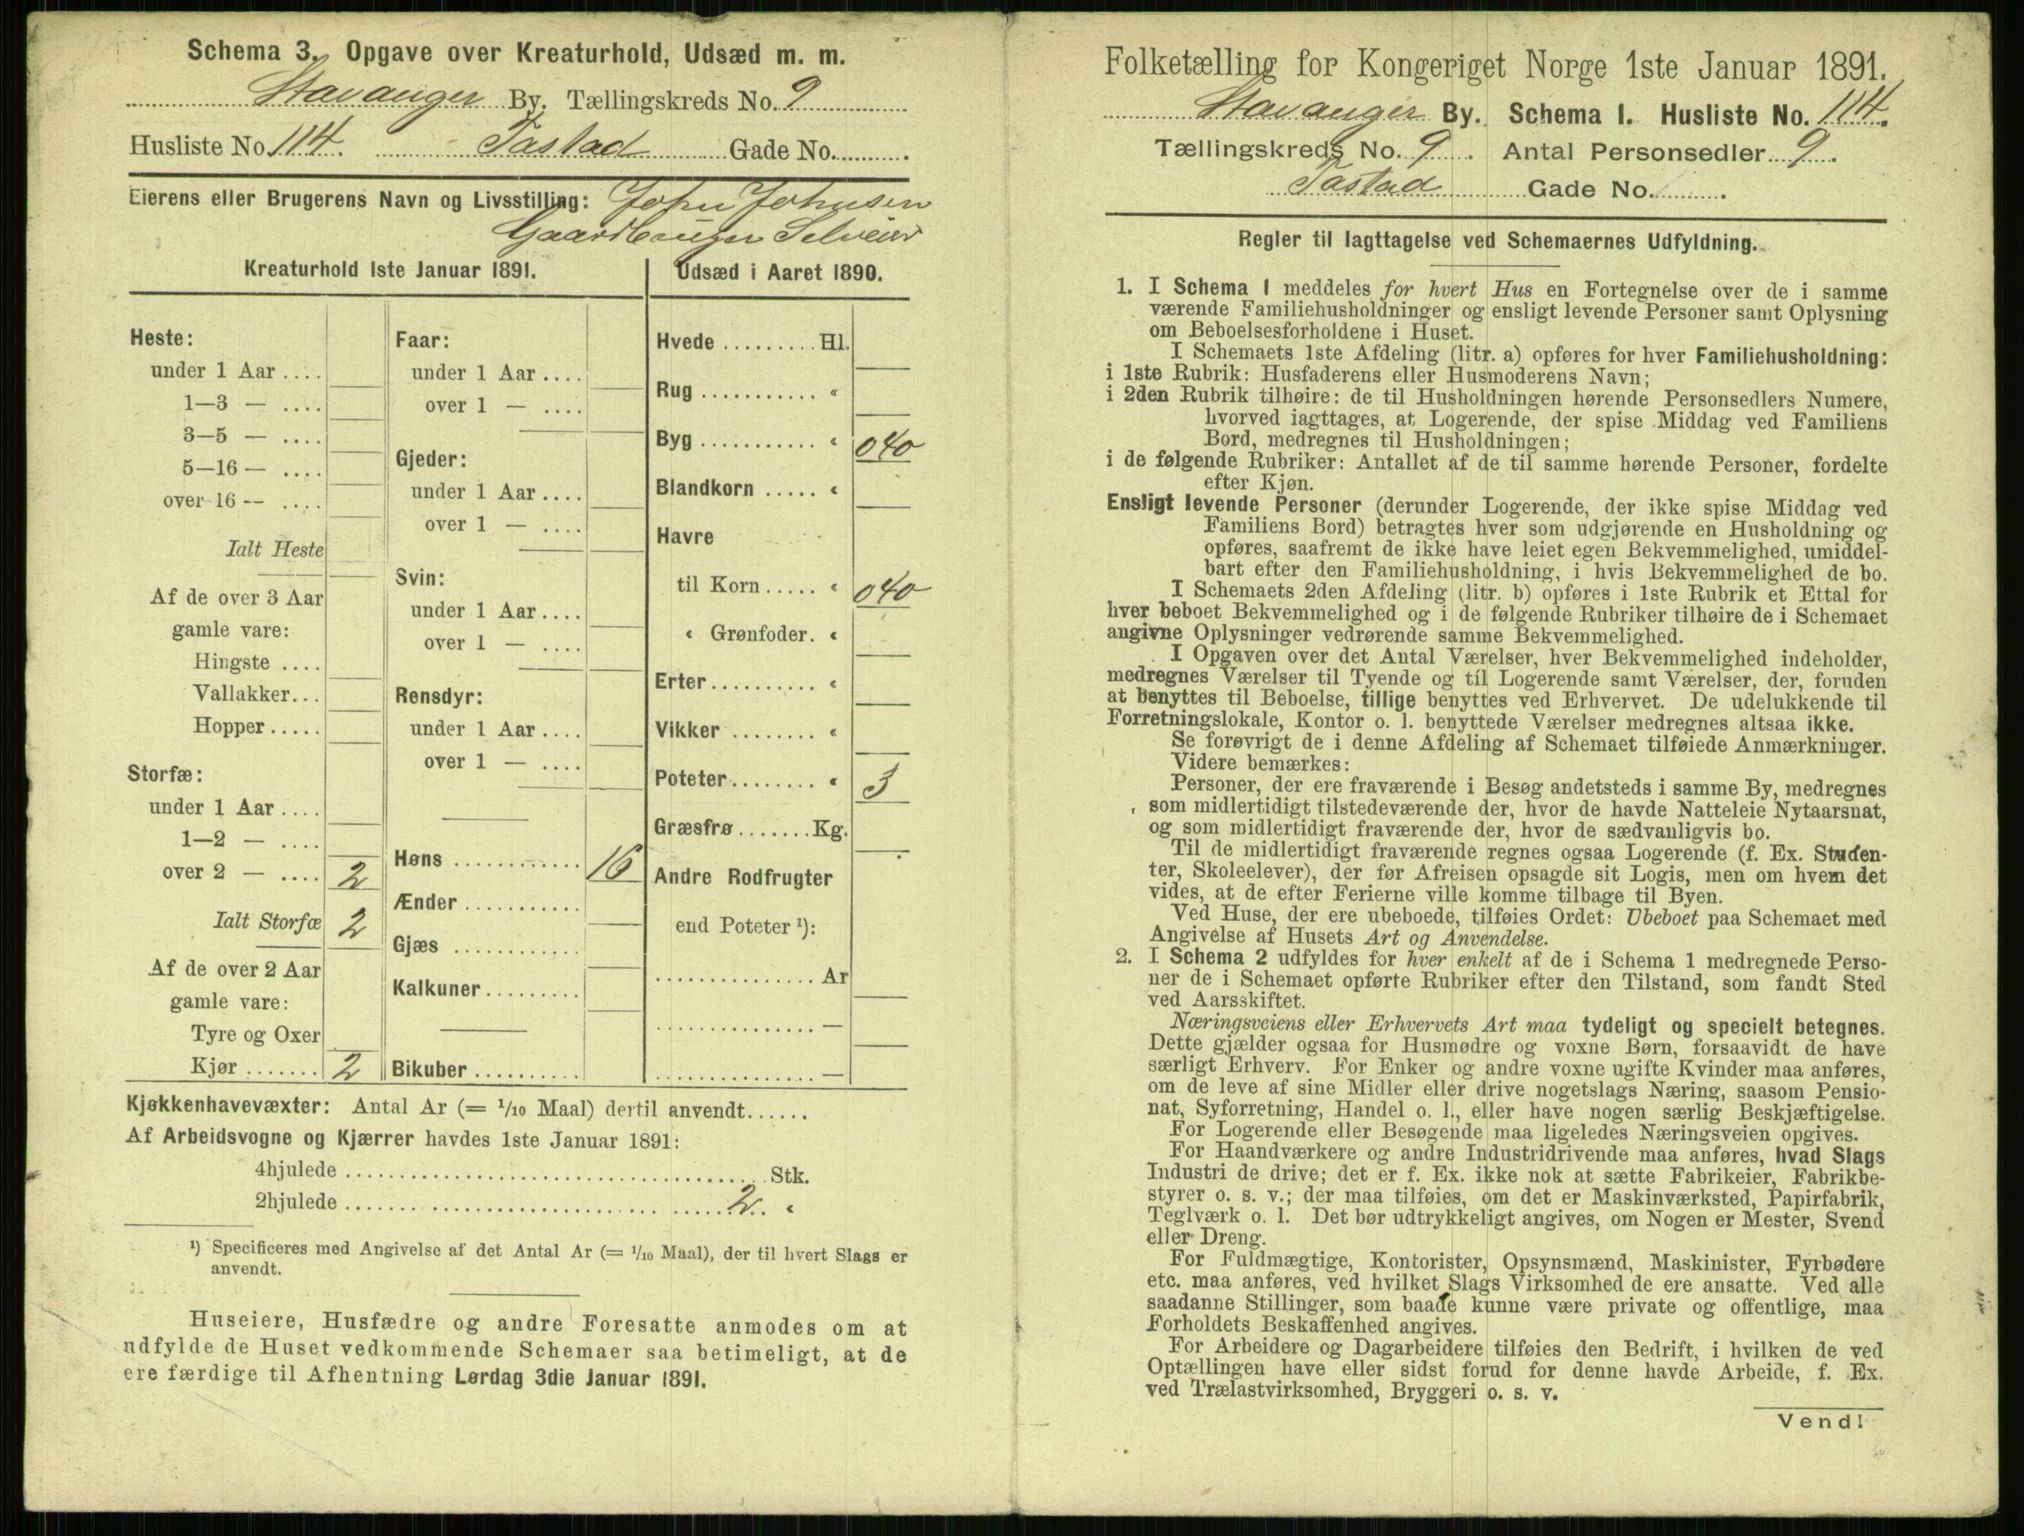 Schema 3. Opgave over Kreaturhold, Udsæd m. m.
Stavanger By. Tællingskreds No. 9
Husliste No. 114. Tastad Gade No.
Eierens eller Brugerens Navn og Livsstilling: John Johnsen
Gaardbruger Selveier
Kreaturhold 1ste Januar 1891.
Heste:
under 1 Aar ....
1—3 — ....
3—5 — ....
5—16 — ....
over 16 — ....
Ialt Heste
Af de over 3 Aar
gamle vare:
Hingste ....
Vallakker...
Hopper.....
Storfæ:
under 1 Aar ....
1—2 — ....
over 2 — .... 2
Ialt Storfæ 2
Af de over 2 Aar
gamle vare:
Tyre og Oxer
Kjør ....... 2
Faar:
under 1 Aar ....
over 1 — ....
Gjeder:
under 1 Aar ....
over 1 — ....
Svin:
under 1 Aar ....
over 1 — ....
Rensdyr:
under 1 Aar ....
over 1 — ....
Høns ............ 16
Ænder ...........
Gjæs ............
Kalkuner.........
Bikuber ..........
Udsæd i Aaret 1890.
Hvede ......... Hl.
Rug ........... "
Byg ........... " 0 40
Blandkorn ..... "
Havre
til Korn..... " 0 40
" Grønfoder. "
Erter.......... "
Vikker ........ "
Poteter........ " 3
Græsfrø....... Kg.
Andre Rodfrugter
end Poteter ¹):
............... Ar
............... —
............... —
Kjøkkenhavevæxter: Antal Ar (= 1/10 Maal) dertil anvendt......
Af Arbeidsvogne og Kjærrer havdes 1ste Januar 1891:
4hjulede ...................................... Stk.
2hjulede ...................................... 2. "
¹) Specificeres med Angivelse af det Antal Ar (= 1/10 Maal), der til hvert Slags er
anvendt.
Huseiere, Husfædre og andre Foresatte anmodes om at
udfylde de Huset vedkommende Schemaer saa betimeligt, at de
ere færdige til Afhentning Lørdag 3die Januar 1891.
Folketælling for Kongeriget Norge 1ste Januar 1891.
Stavanger By. Schema 1. Husliste No. 114.
Tællingskreds No. 9. Antal Personsedler 9.
Tastad Gade No.
Regler til Iagttagelse ved Schemaernes Udfyldning.
1. I Schema 1 meddeles for hvert Hus en Fortegnelse over de i samme
værende Familiehusholdninger og ensligt levende Personer samt Oplysning
om Beboelsesforholdene i Huset.
I Schemaets 1ste Afdeling (litr. a) opføres for hver Familiehusholdning:
i 1ste Rubrik: Husfaderens eller Husmoderens Navn;
i 2den Rubrik tilhøire: de til Husholdningen hørende Personsedlers Numere,
hvorved iagttages, at Logerende, der spise Middag ved Familiens
Bord, medregnes til Husholdningen;
i de følgende Rubriker: Antallet af de til samme hørende Personer, fordelte
efter Kjøn.
Ensligt levende Personer (derunder Logerende, der ikke spise Middag ved
Familiens Bord) betragtes hver som udgjørende en Husholdning og
opføres, saafremt de ikke have leiet egen Bekvemmelighed, umiddel-
bart efter den Familiehusholdning, i hvis Bekvemmelighed de bo.
I Schemaets 2den Afdeling (litr. b) opføres i 1ste Rubrik et Ettal for
hver beboet Bekvemmelighed og i de følgende Rubriker tilhøire de i Schemaet
angivne Oplysninger vedrørende samme Bekvemmelighed.
I Opgaven over det Antal Værelser, hver Bekvemmelighed indeholder,
medregnes Værelser til Tyende og til Logerende samt Værelser, der, foruden
at benyttes til Beboelse, tillige benyttes ved Erhvervet. De udelukkende til
Forretningslokale, Kontor o. l. benyttede Værelser medregnes altsaa ikke.
Se forøvrigt de i denne Afdeling af Schemaet tilføiede Anmærkninger.
Videre bemærkes:
Personer, der ere fraværende i Besøg andetsteds i samme By, medregnes
som midlertidigt tilstedeværende der, hvor de havde Natteleie Nytaarsnat,
og som midlertidigt fraværende der, hvor de sædvanligvis bo.
Til de midlertidigt fraværende regnes ogsaa Logerende (f. Ex. Studen-
ter, Skoleelever), der før Afreisen opsagde sit Logis, men om hvem det
vides, at de efter Ferierne ville komme tilbage til Byen.
Ved Huse, der ere ubeboede, tilføies Ordet: Ubeboet paa Schemaet med
Angivelse af Husets Art og Anvendelse.
2. I Schema 2 udfyldes for hver enkelt af de i Schema 1 medregnede Perso-
ner de i Schemaet opførte Rubriker efter den Tilstand, som fandt Sted
ved Aarsskiftet.
Næringsveiens eller Erhvervets Art maa tydeligt og specielt betegnes.
Dette gjælder ogsaa for Husmødre og voxne Børn, forsaavidt de have
særligt Erhverv. For Enker og andre voxne ugifte Kvinder maa anføres,
om de leve af sine Midler eller drive nogetslags Næring, saasom Pensio-
nat, Syforretning, Handel o. l., eller have nogen særlig Beskjæftigelse.
For Logerende eller Besøgende maa ligeledes Næringsveien opgives.
For Haandværkere og andre Industridrivende maa anføres, hvad Slags
Industri de drive; det er f. Ex. ikke nok at sætte Fabrikeier, Fabrikbe-
styrer o. s. v.; der maa tilføies, om det er Maskinværksted, Papirfabrik,
Teglværk o. l. Det bør udtrykkeligt angives, om Nogen er Mester, Svend
eller Dreng.
For Fuldmægtige, Kontorister, Opsynsmænd, Maskinister, Fyrbødere
etc. maa anføres, ved hvilket Slags Virksomhed de ere ansatte. Ved alle
saadanne Stillinger, som baade kunne være private og offentlige, maa
Forholdets Beskaffenhed angives.
For Arbeidere og Dagarbeidere tilføies den Bedrift, i hvilken de ved
Optællingen have eller sidst forud for denne havde Arbeide, f. Ex.
ved Trælastvirksomhed, Bryggeri o. s. v.
Vend!